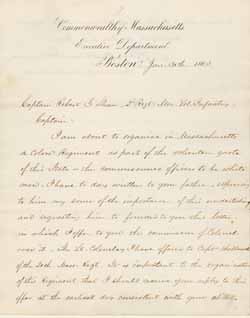 Commonwealth of Massachusetts
Executive Department
Boston, Jan. 30th 1863.
Captain Robert G. Shaw 2d Regt. Mas. Vol. Infantry
Captain
I am about to organize in Massachusetts
a Colored Regiment as part of the volunteer quota
of this State - the commissioned officers to be white
men. I have to day written to your father, expressing
to him my sense of the importance of this undertaking
and requesting him to forward to you this letter,
in which I offer to you the commission of Colonel
over it. The Lt. Colonelcy I have offered to Capt. Hallowell
of the 20th Mass. Regt. It is important to the organization
of this Regiment that I should receive your reply to this
offer at the earliest day consistent with your ability